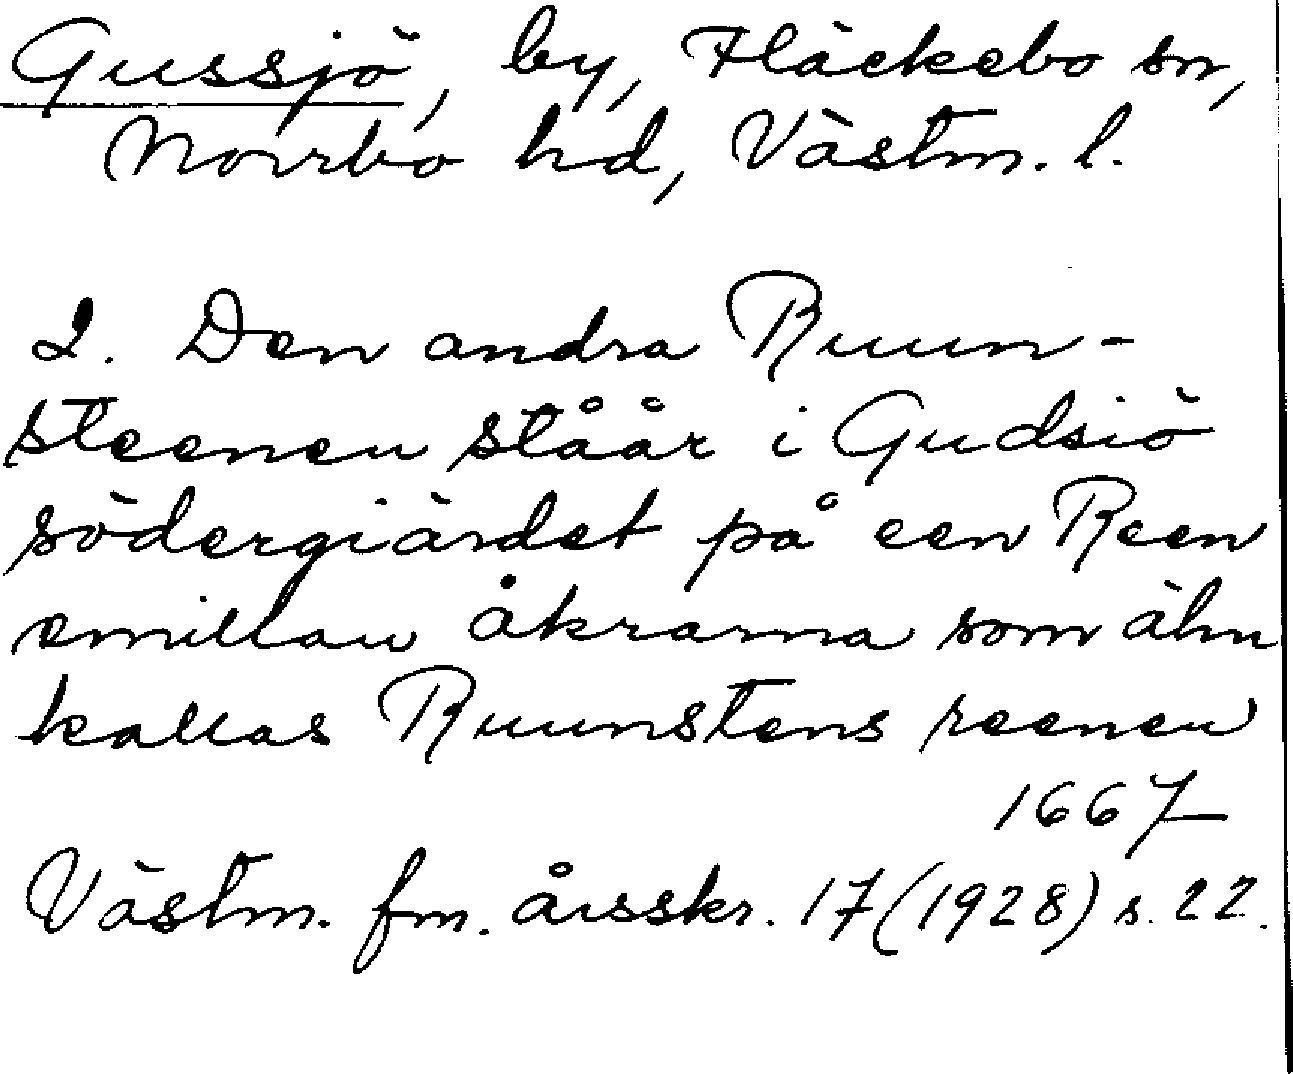 Gussjö, by, Fläckebo sn,
Norrbo hd, Västm. l.
2. Den andra Ruun-
steenen ståår i Gudsiö
södergiärdet på een Reen
emillan åkrarna som än
kallas Ruunstens reenen
1667
Västm. fm. årsskr. 17 (1928) s. 22.